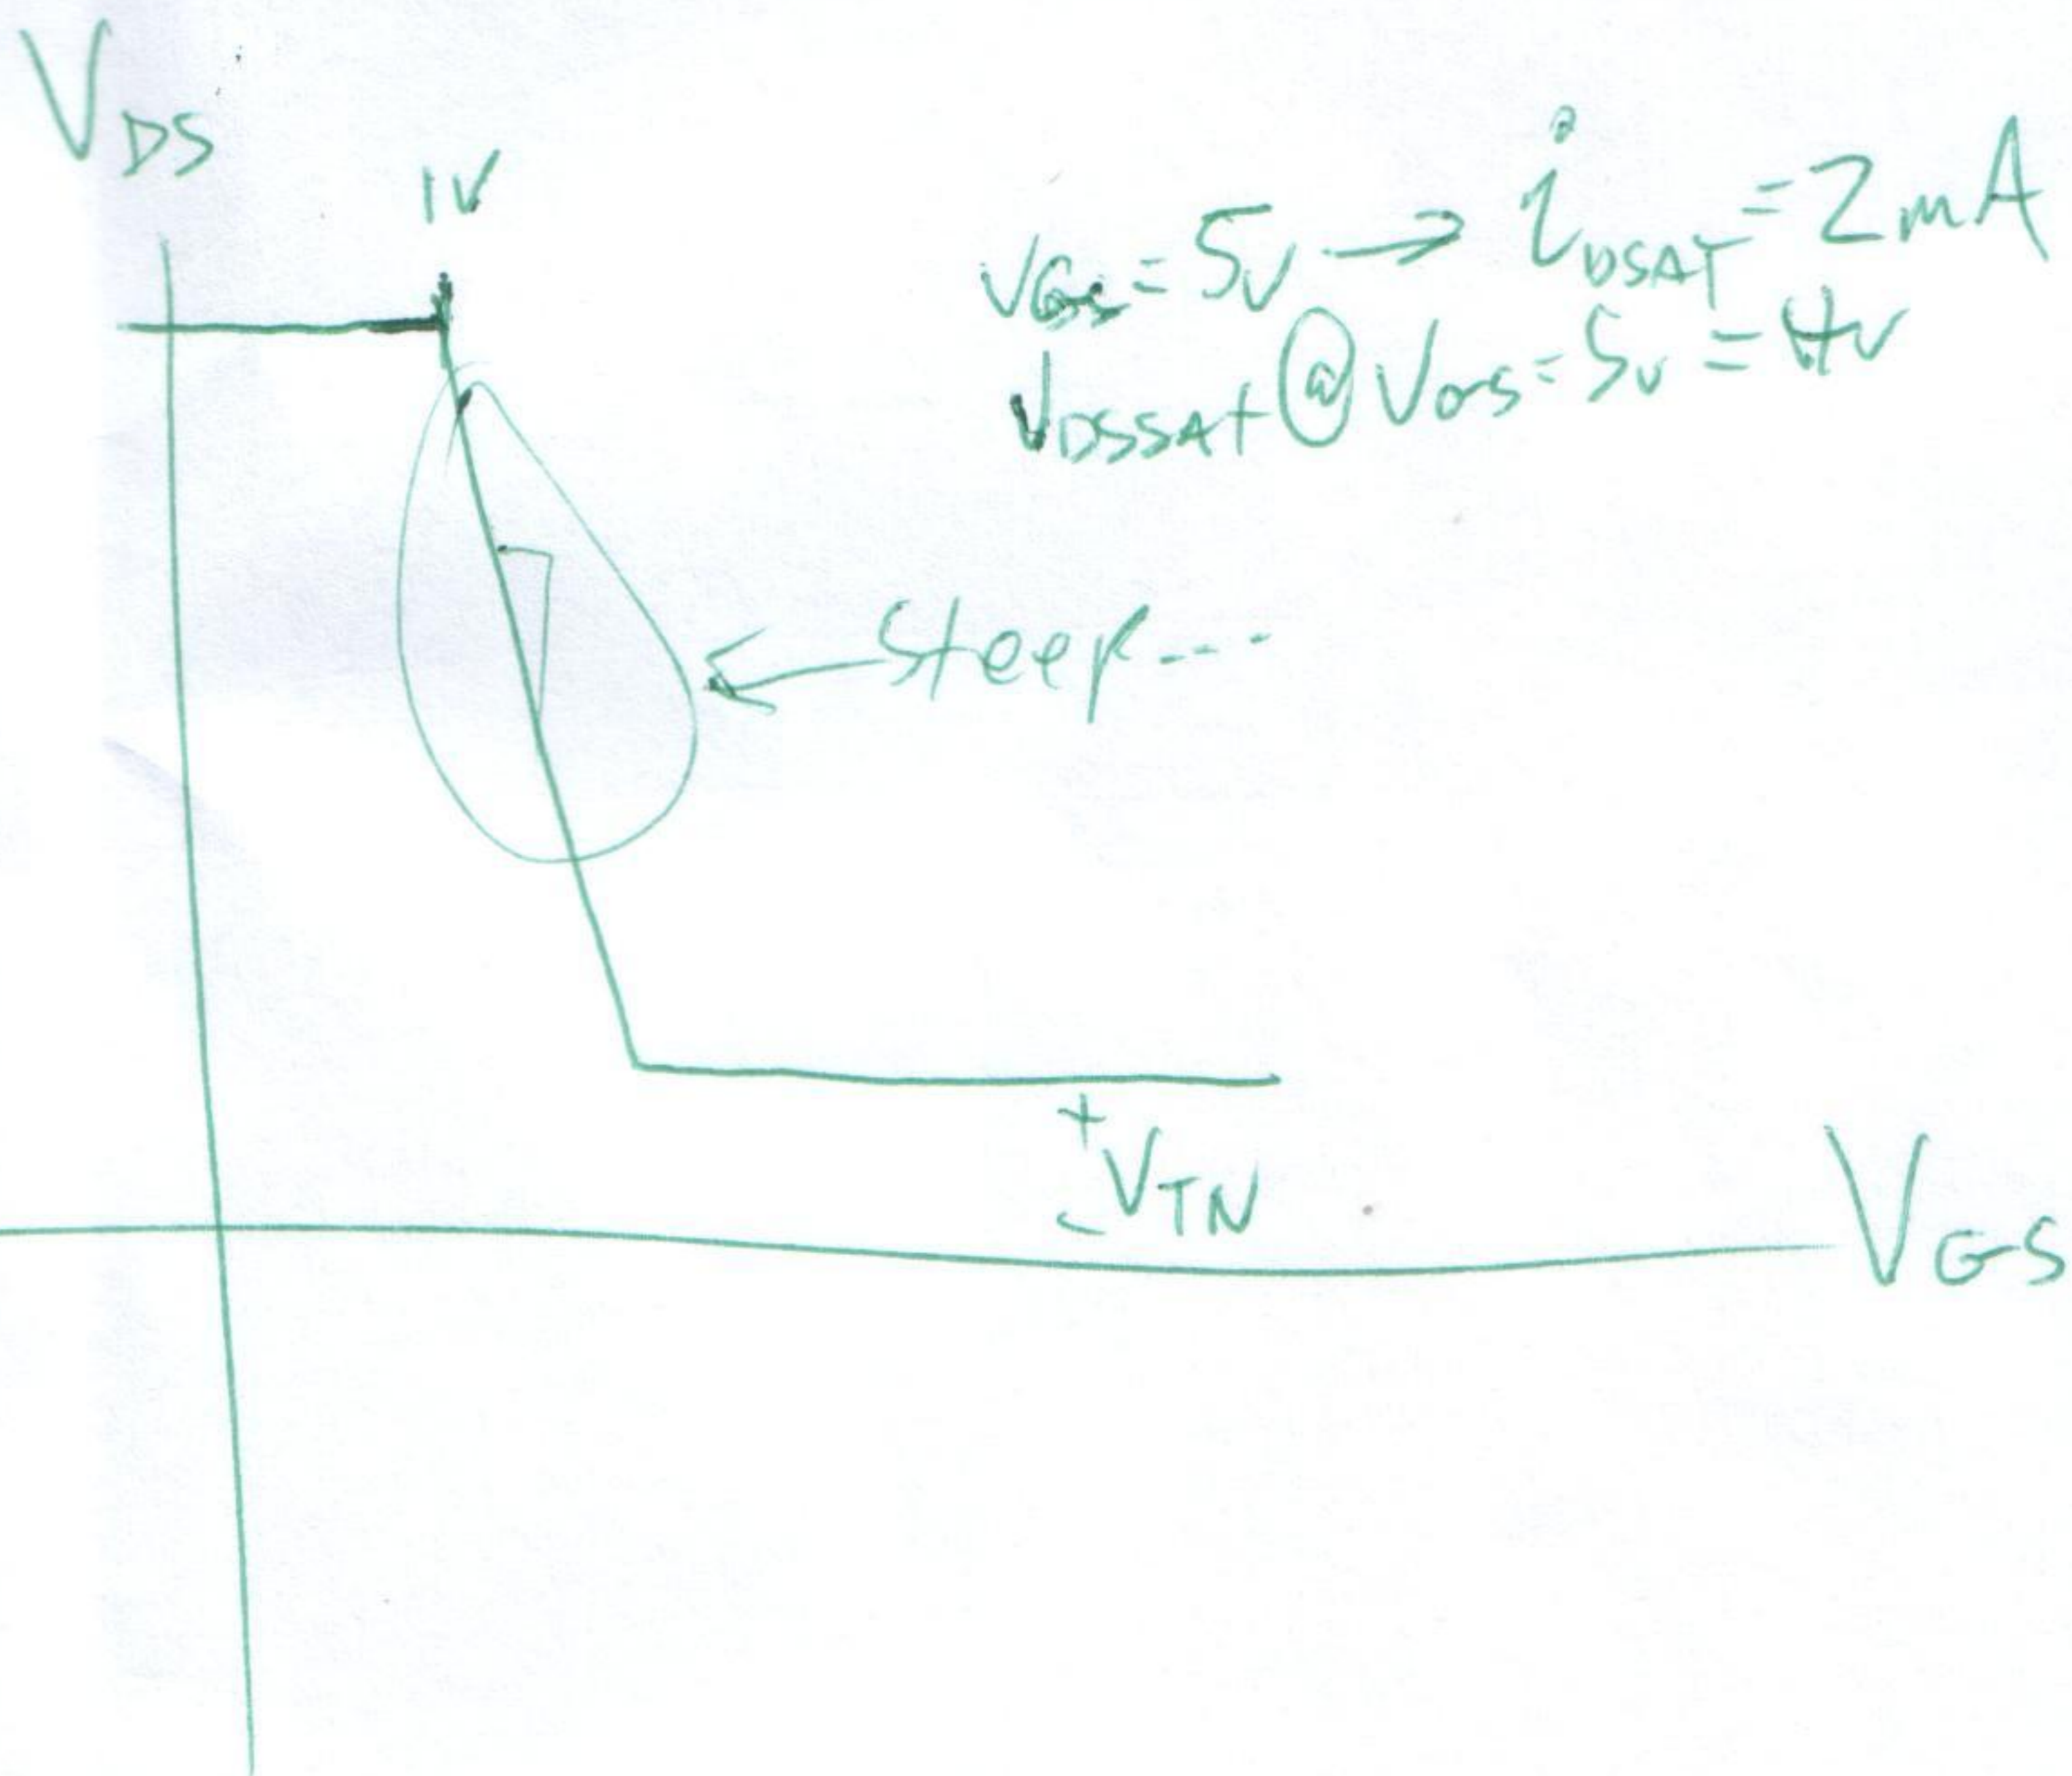 V_DS
1V
V_GS = 5V → i_DSAT = 2mA
V_DSSAT @ V_GS = 5V = 4V
← Steep---
+
V_TN
-
V_GS